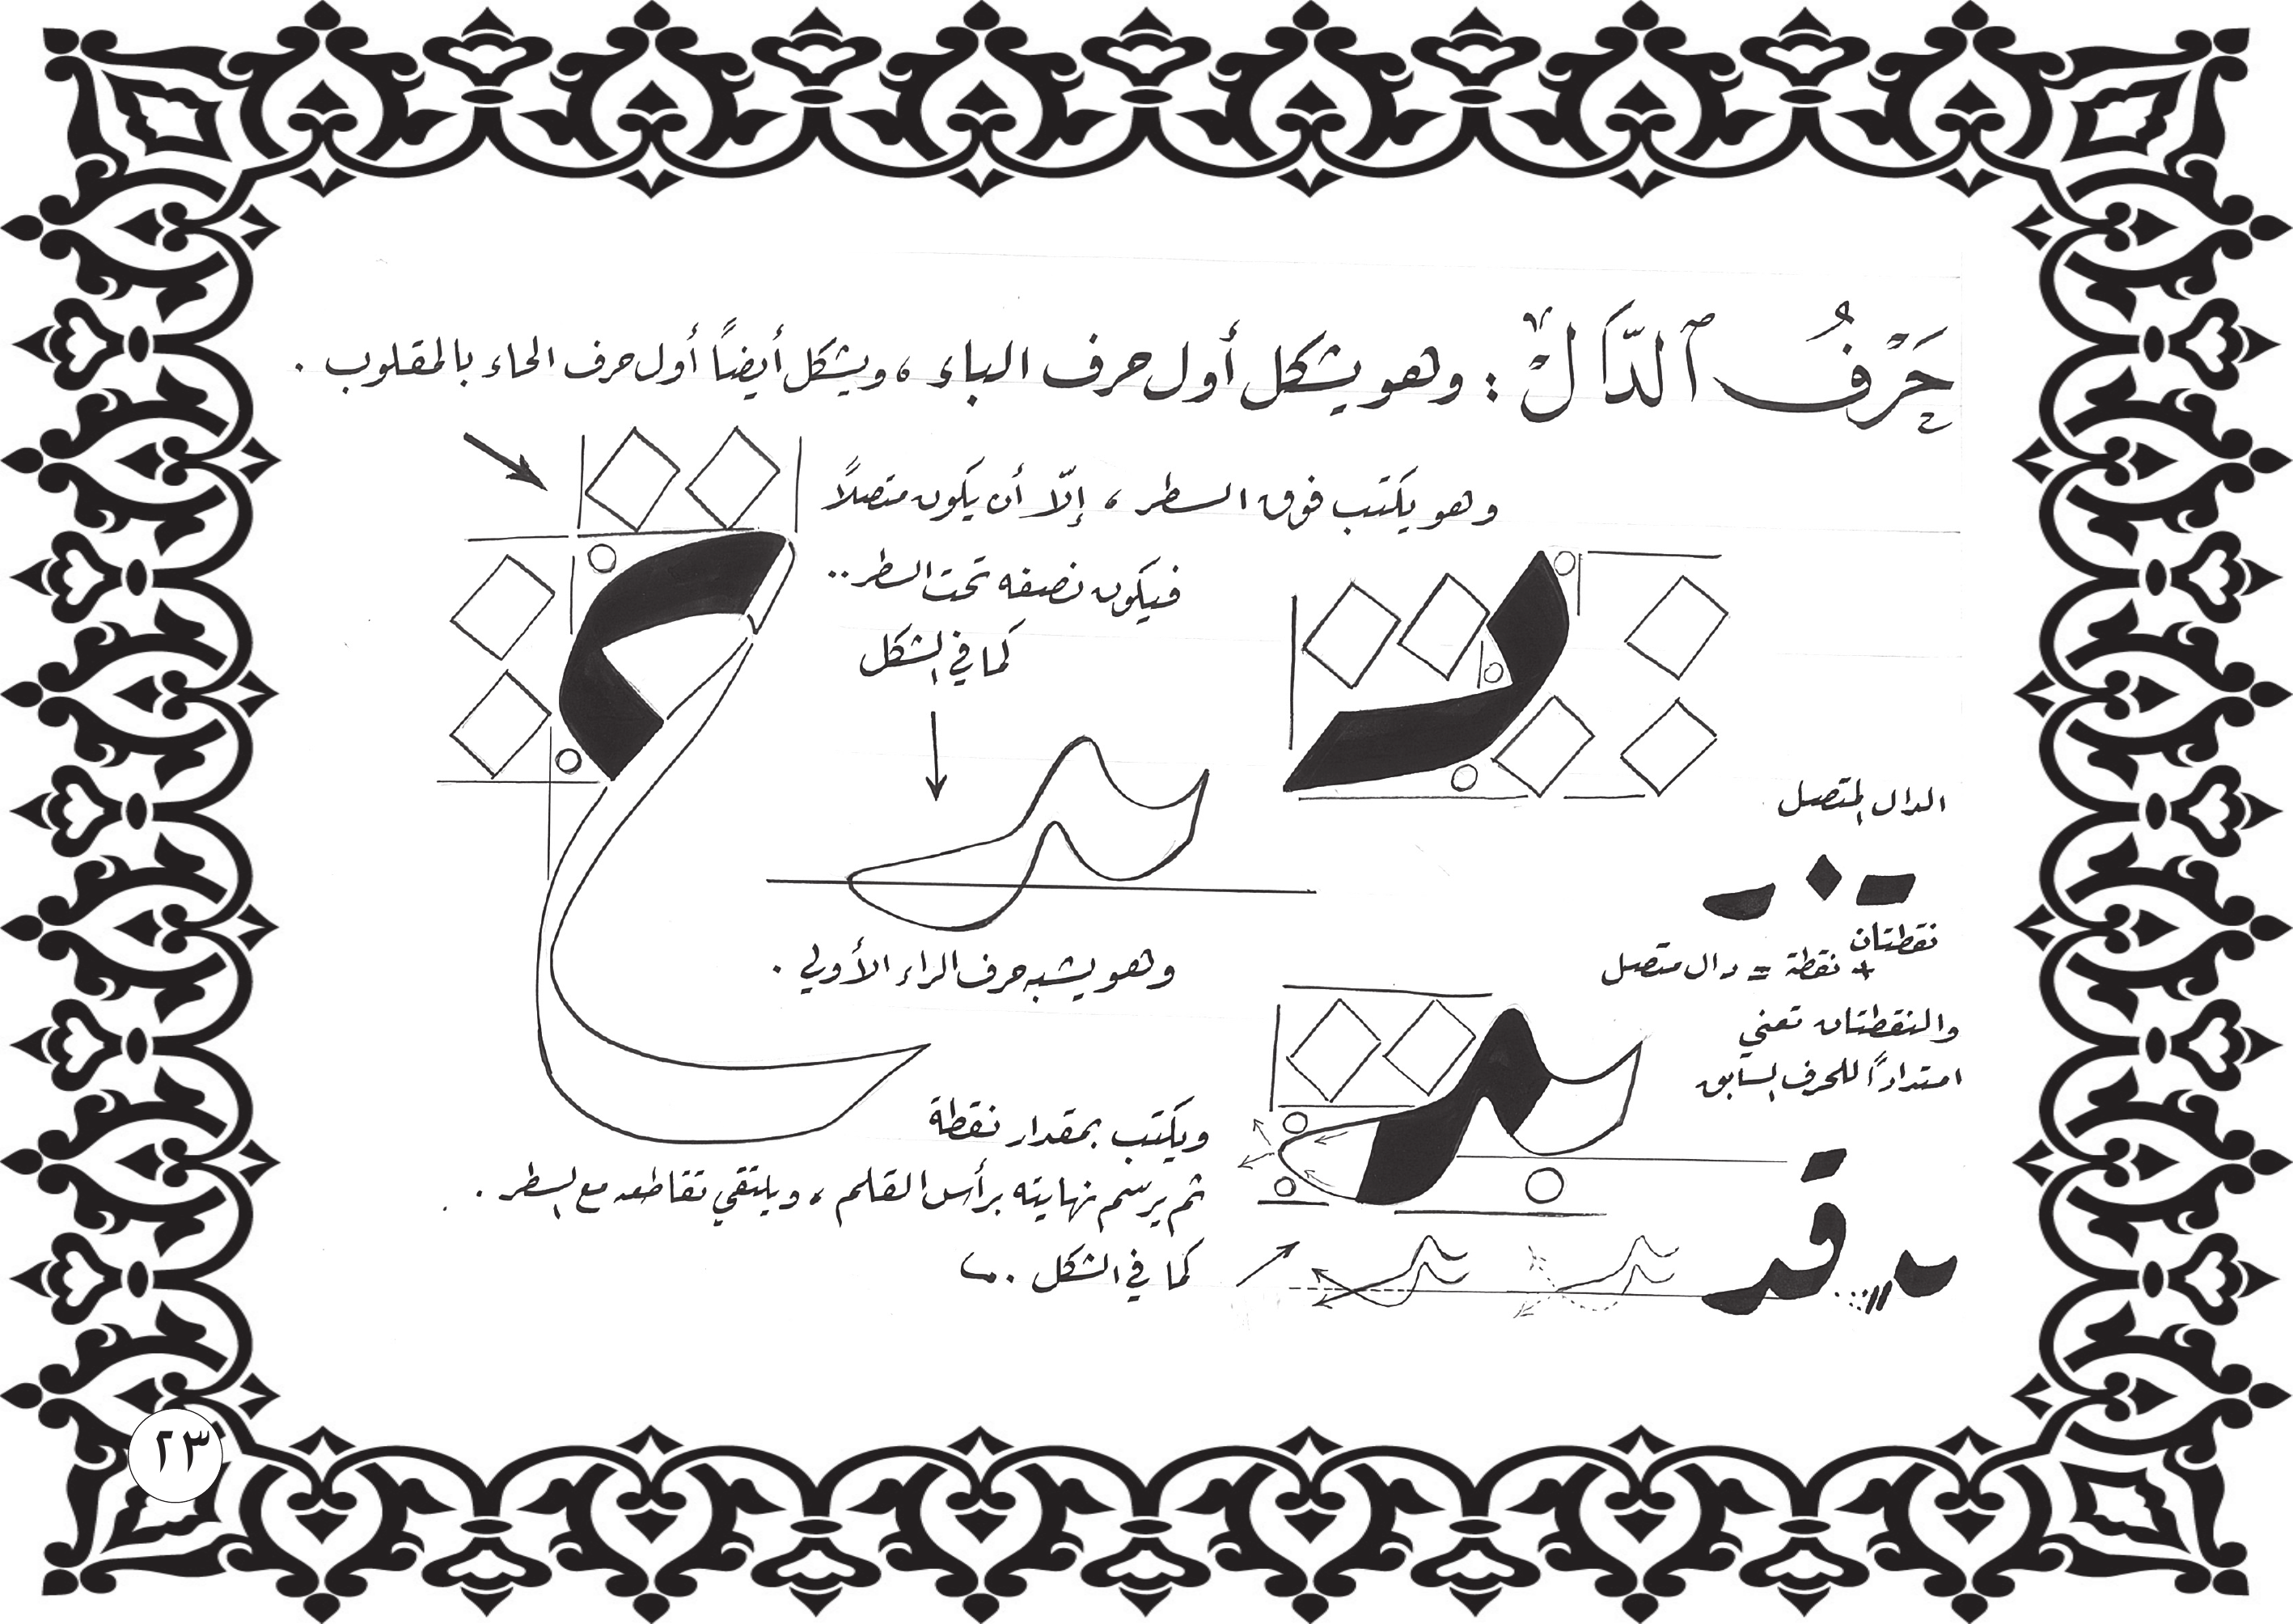 حَرْفُ ٱلدَّالْ : وهو يشكل أول حرف الباء ، ويشكل أيضاً أول حرف الحاء بالمقلوب .
وهو يكتب فوق السطر ، إلّا أن يكون متصلاً
فيكون نصفه تحت السطر..
كما في الشكل
الدال المتصل
نقطتان
+ نقطة = دال متصل
والنقطتان تعني
امتداداً للحرف السابق
وهو يشبه حرف الراء الأولي .
ويكتب بمقدار نقطة
ثم يرسم نهايته برأس القلم ، ويلتقي تقاطعه مع السطر .
كما في الشكل ..
٢٣